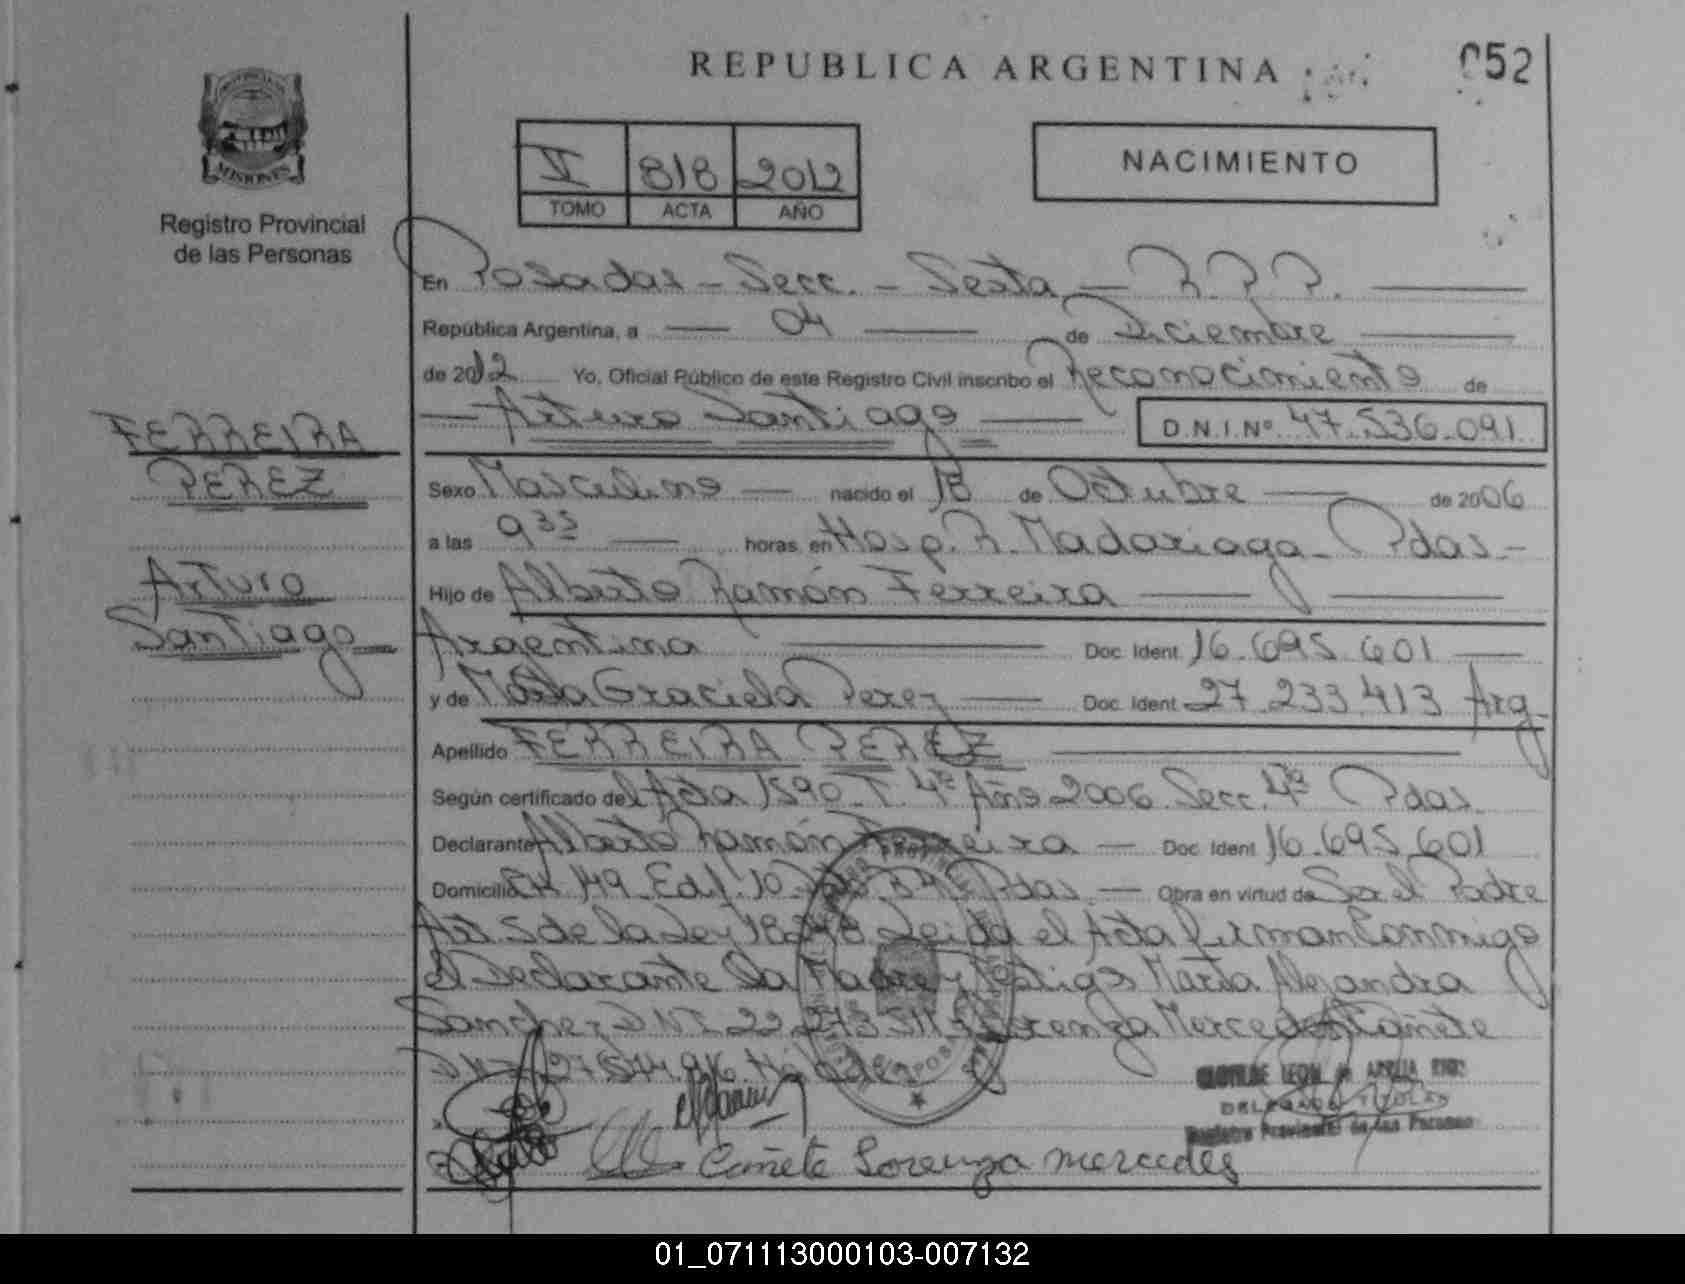 REPUBLICA ARGENTINA
052
MISIONES
Registro Provincial
de las Personas
V 818 2012
TOMO ACTA AÑO
NACIMIENTO
En Posadas - Secc. - Sexta - R.P.P.
República Argentina, a 04 de Diciembre
de 2012 Yo, Oficial Público de este Registro Civil inscribo el Reconocimiento de
Arturo Santiago D.N.I.Nº 47.536.091
FERREIRA
PEREZ
Arturo
Santiago
Sexo Masculino nacido el 18 de Octubre de 2006
a las 9 35 horas en Hosp. R. Madariaga - Pdas -
Hijo de Alberto Ramón Ferreira
Argentina Doc. Ident. 16.695.601
y de María Graciela Perez Doc. Ident. 27.233.413 Arg.
Apellido FERREIRA PEREZ
Según certificado del Acta 1590 T. 4º Año 2006 Secc. 4ª Pdas.
Declarante Alberto Ramón Ferreira Doc. Ident. 16.695.601
Domicilio CH 149 Edf. 10 Pdas. Obra en virtud de Ser el Padre
Art. 5 de la Ley 18248 Leida el Acta firman Conmigo
el Declarante la Madre y Testigos María Alejandra
Sanchez DNI 22 Lorenza Mercedes Cañete
Cañete Lorenza mercedes
DELEGADA TITULAR
Registro Provincial de las Personas
01_071113000103-007132